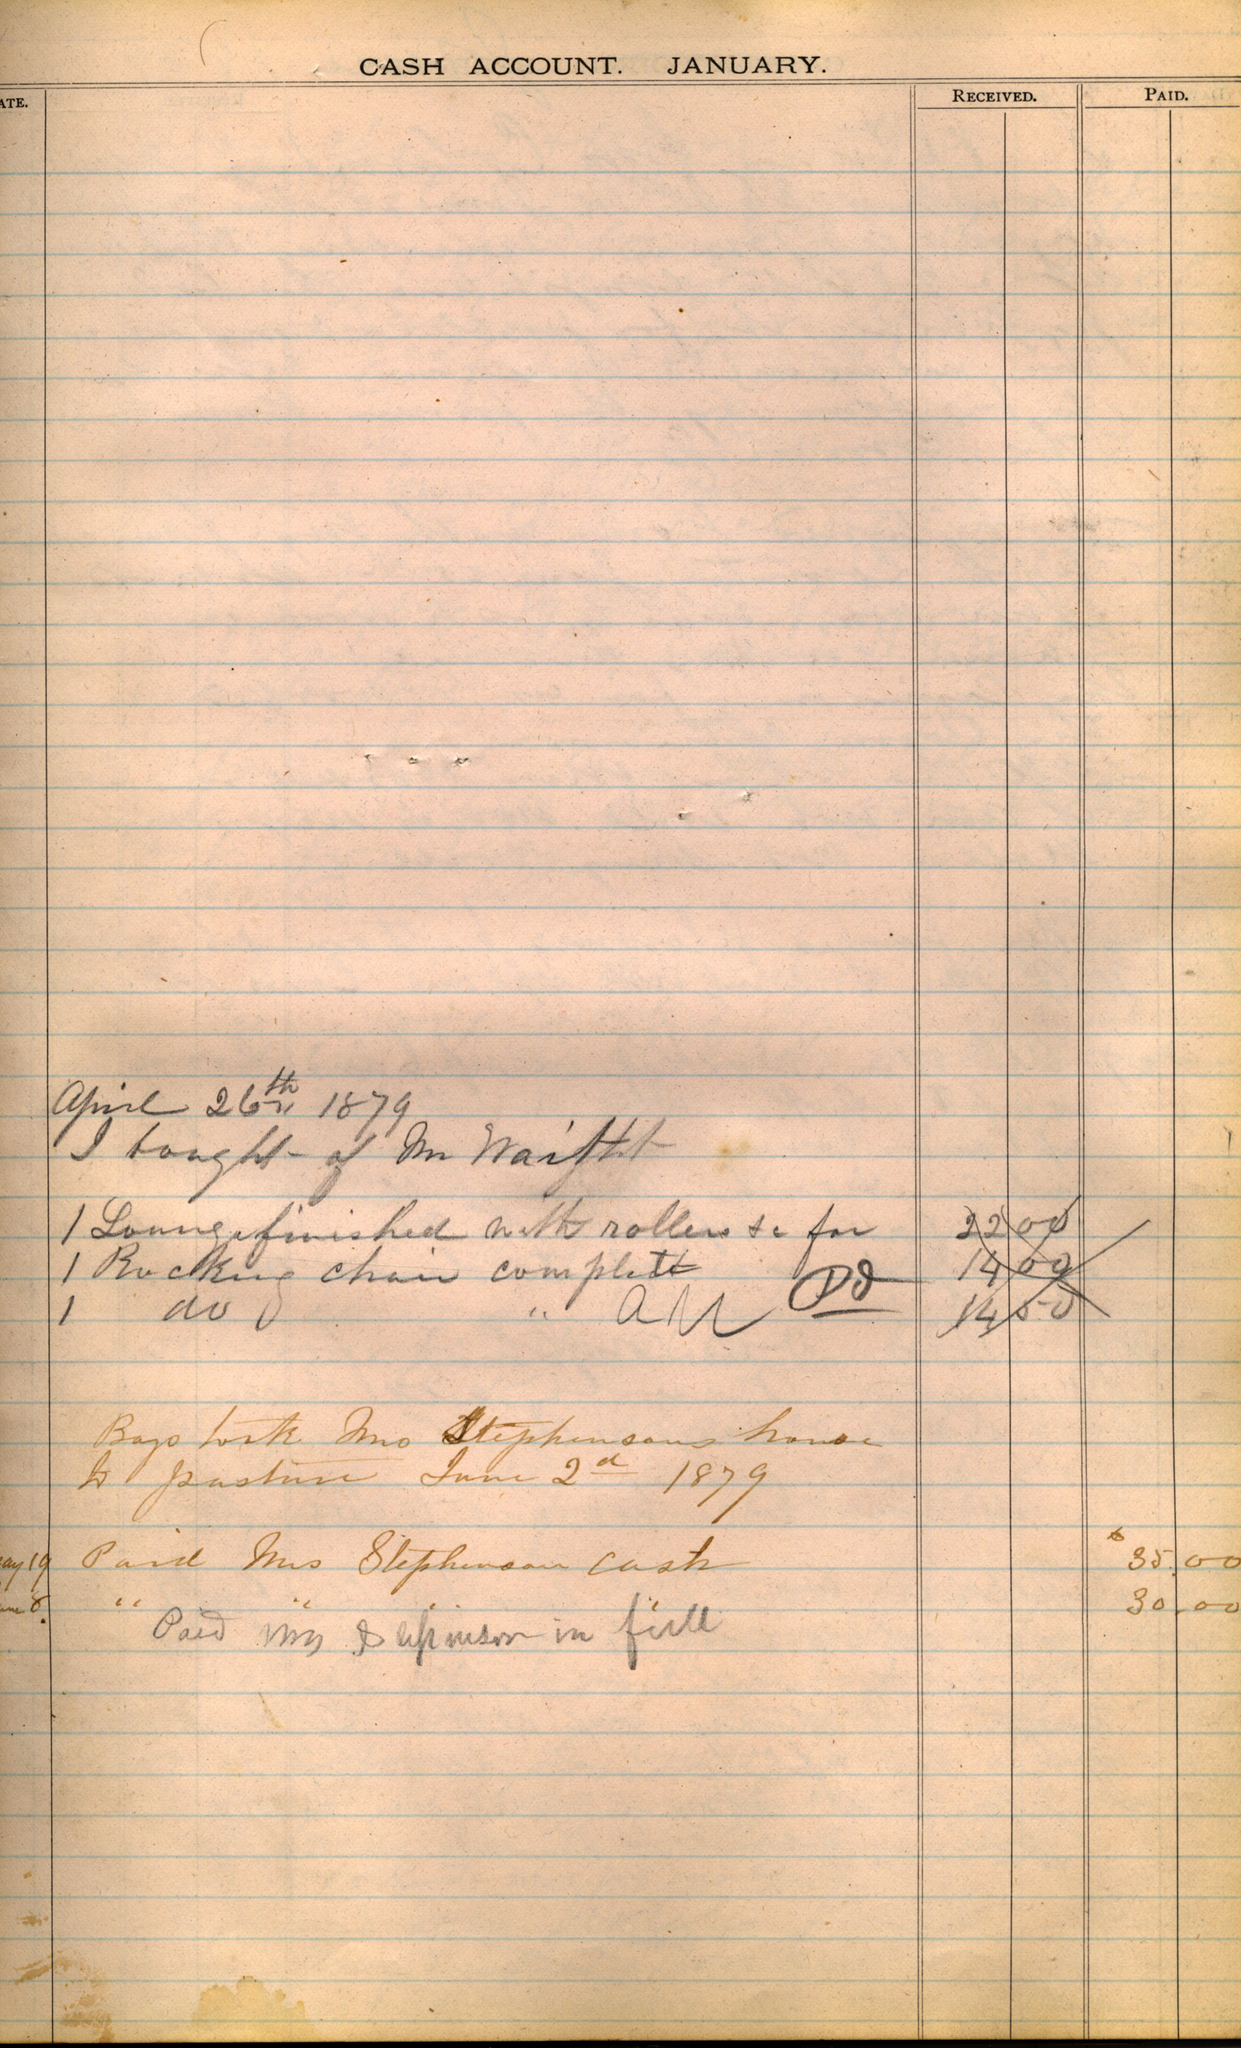 CASH ACCOUNT. JANUARY.
ATE. RECEIVED. PAID.
April 26th 1879
I bought of Mr
1 Lounge finished with rollers &c for 22 00
1 Rocking chair complett 14 00
1 do " All Pd 14 50
Boys took Mrs Stephensons horse
to pasture June 2d 1879
ay 19 Paid Mrs Stephenson cash $35.00
une 8. " " " " 30.00
Paid Mrs Stephinson in full